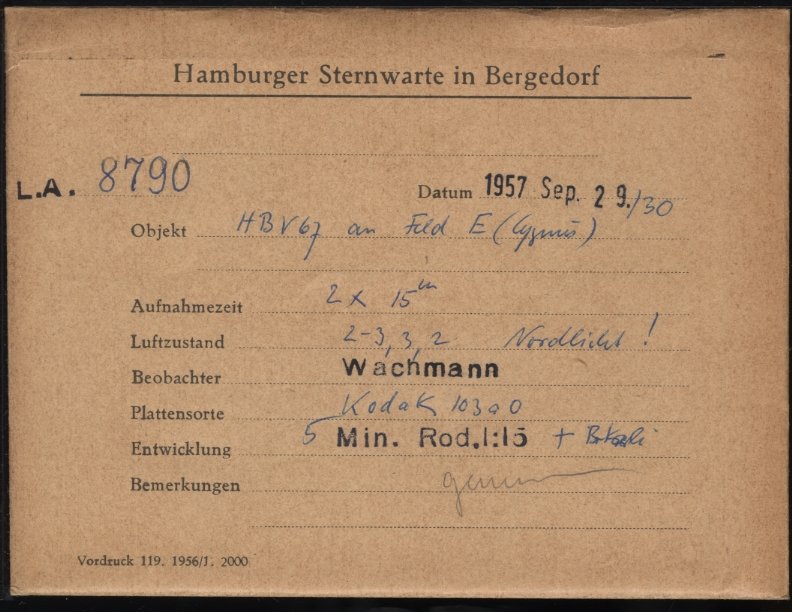 Hamburger Sternwarte in Bergedorf
L.A. 8790
Datum 1957 Sep. 29./30
Objekt HBV67 an Feld E (Cygnus)
Aufnahmezeit 2 x 15m
Luftzustand 2-3, 3, 2 Nordlicht!
Beobachter Wachmann
Plattensorte Kodak 103a0
Entwicklung 5 Min. Rod.1:15 +
Bemerkungen
Vordruck 119. 1956/1. 2000